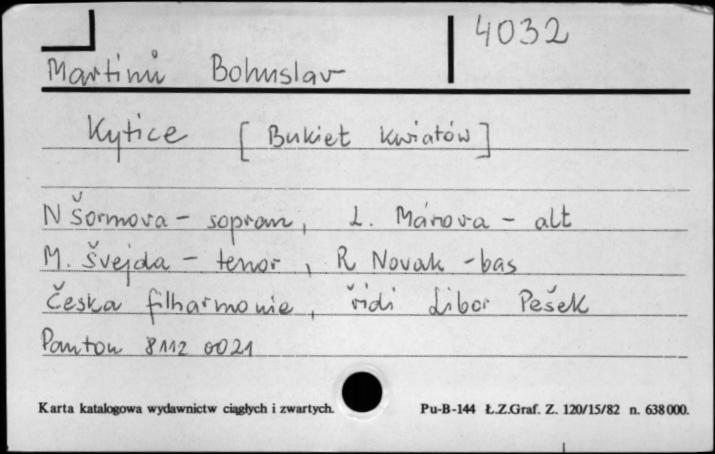 4032
Martinu Bohuslav
Kytice [Bukiet kwiatów]
N Šormova - sopran, L. Márova - alt
M. Švejda - tenor, R Novak - bas
Česka filharmonie, řidi Libor Pešek
Panton 8112 0021
Karta katalogowa wydawnictw ciągłych i zwartych. Pu-B-144 Ł.Z.Graf. Z. 120/15/82 n. 638000.